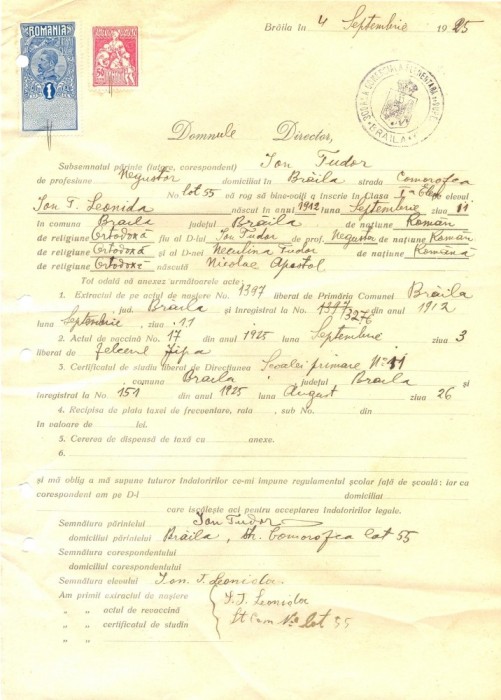 ROMANIA
1
Brăila în 4 Septembrie 1925
BRĂILA
Domnule Director,
Subsemnatul părinte (tutore, corespondent) Ion Tudor
de profesiune Negustor domiciliat în Brăila strada Comorofca
No. lot 55 vă rog să bine-voiți a înscrie în Clasa I-a elevul
Ion T. Leonida născut în anul 1912 luna Septembrie ziua 11
în comuna Braila județul Brăila de națiune Român
de religiune Ortodoxă fiu al D-lui Ion Tudor de prof. Negustor de națiune Român
de religiune Ortodoxă și al D-nei Neculina Tudor de națiune Română
de religiune Ortodoxă născută Nicolae Apostol
Tot odată vă anexez următoarele acte:
1. Extractul de pe actul de naștere No. 1397 liberat de Primăria Comunei Brăila
jud. Braila și înregistrat la No. 1397/3276 din anul 1912
luna Septembrie, ziua 11
2. Actul de vaccină No. 17 din anul 1925 luna Septembrie ziua 3
liberat de
3. Certificatul de studiu liberat de Direcțiunea Școalei primare No. 11
comuna Braila județul Braila și
înregistrat la No. 151 din anul 1925 luna August ziua 26
4. Recipisa de plata taxei de frecuentare, rata sub No. din
în valoare de lei.
5. Cererea de dispensă de taxă cu anexe.
6.
și mă oblig a mă supune tuturor îndatoririlor ce-mi impune regulamentul școlar față de școală: iar ca
corespondent am pe D-l domiciliat
care iscălește aci pentru acceptarea îndatoririlor legale.
Semnătura părintelui Ion Tudor
domiciliul părintelui Brăila, str. Comorofca lot 55
Semnătura corespondentului
domiciliul corespondentului
Semnătura elevului Ion. T. Leonida.
Am primit extractul de naștere
„ „ actul de revaccină I. T. Leonida
„ „ certificatul de studiu No lot 55
„ „